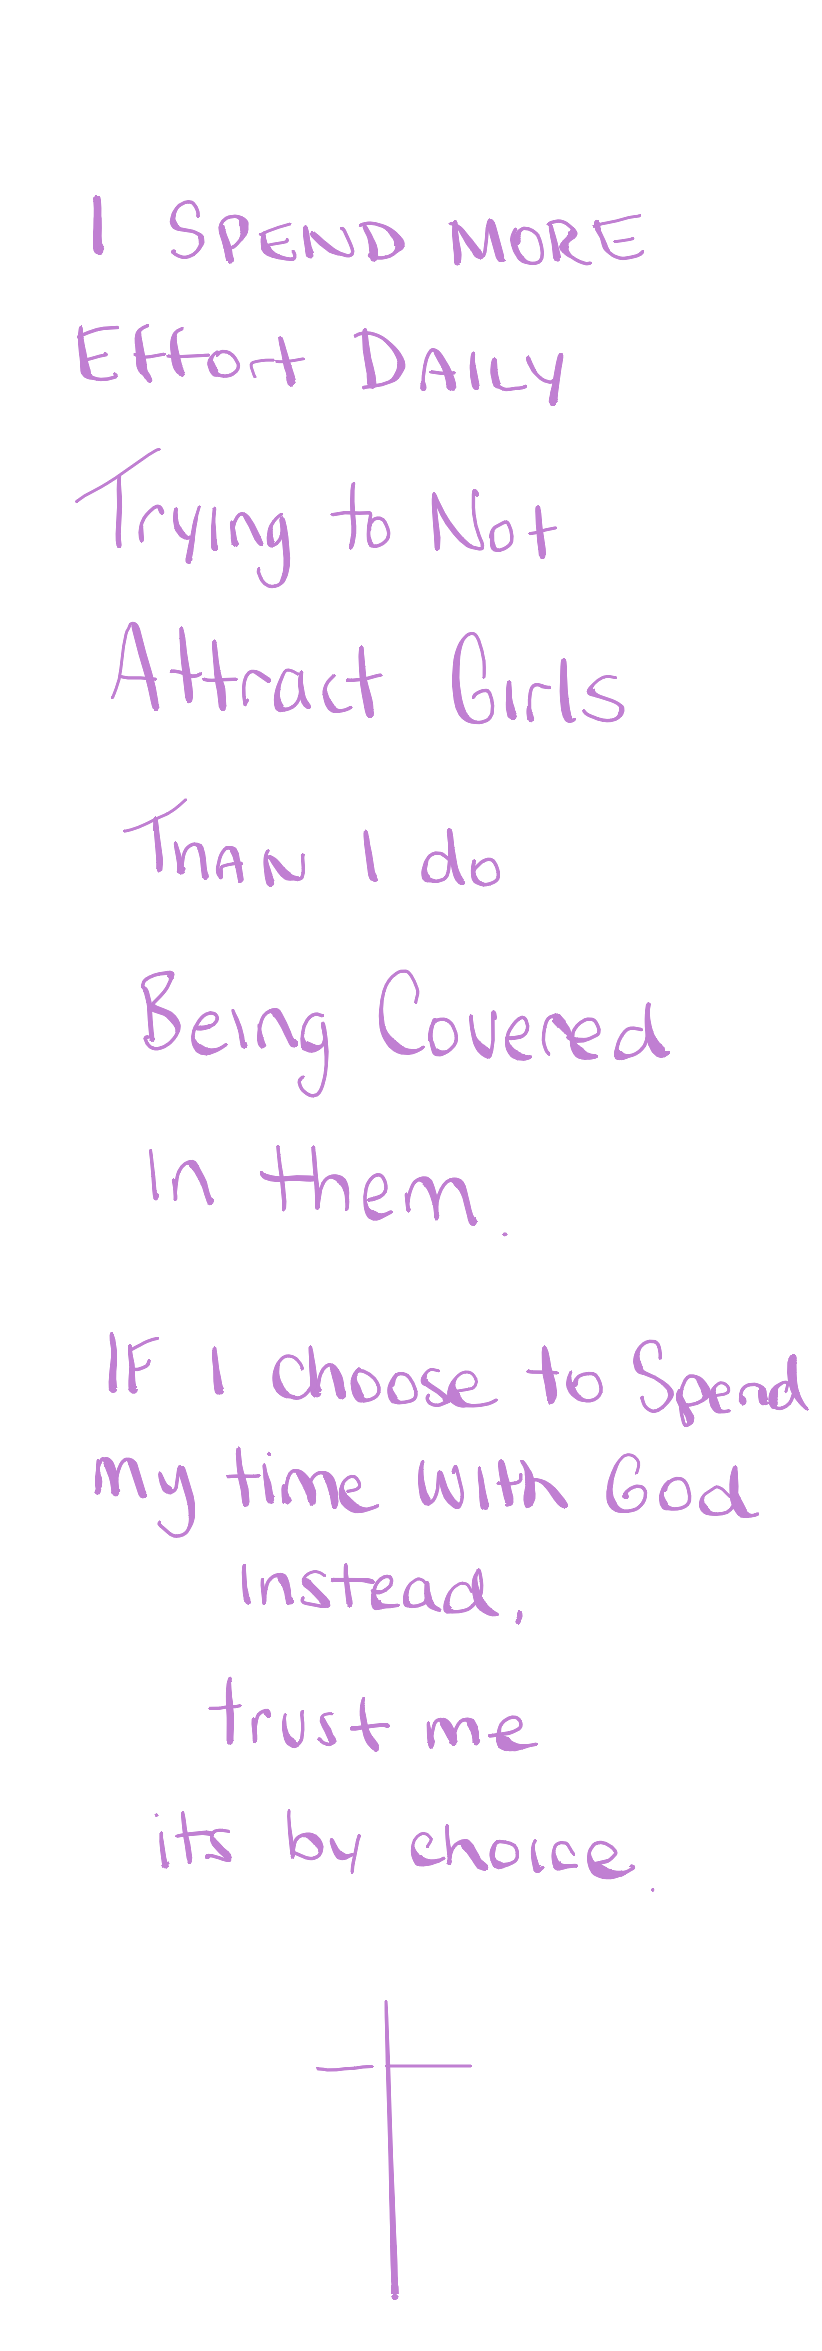 I SPEND MORE
Effort DAILY
Trying to Not
Attract Girls
THAN I do
Being Covered
in them.
IF I choose to Spend
my time with God
instead,
trust me
its by choice.